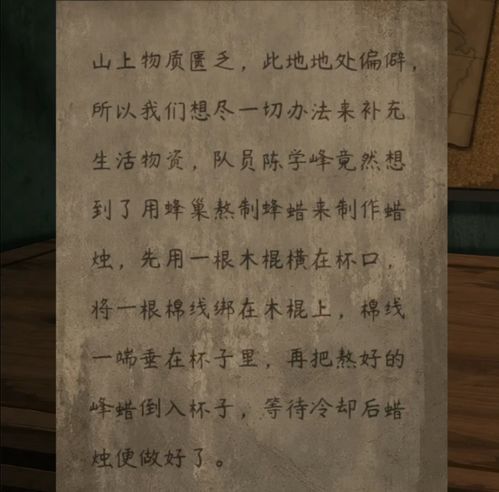 山上物质匮乏，此地地处偏僻，
所以我们想尽一切办法来补充
生活物资，队员陈学峰竟然想
到了用蜂巢熬制蜂蜡来制作蜡
烛，先用一根木棍横在杯口，
将一根棉线绑在木棍上，棉线
一喘垂在杯子里，再把熬好的
峰蜡倒入杯子，等待冷却后蜡
烛便做好了。